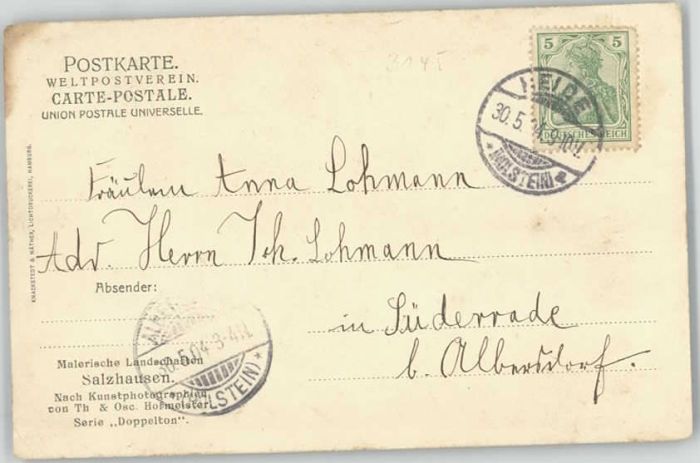 POSTKARTE.
WELTPOSTVEREIN.
CARTE-POSTALE.
UNION POSTALE UNIVERSELLE.
314
5 5
DEUTSCHES REICH
HEIDE
30.5.04.9-10V.
*(HOLSTEIN)*
Fräulein Anna Lohmann
Adr. Herrn Joh. Lohmann
Absender:
in Süderrade
b. Albersdorf.
30.5.04 3-4N.
(HOLSTEIN)*
Malerische Landschaften
Salzhausen.
Nach Kunstphotographien
von Th & Osc. Hofmeister
Serie „Doppelton".
KNACKSTEDT & NÄTHER, LICHTDRUCKEREI, HAMBURG.